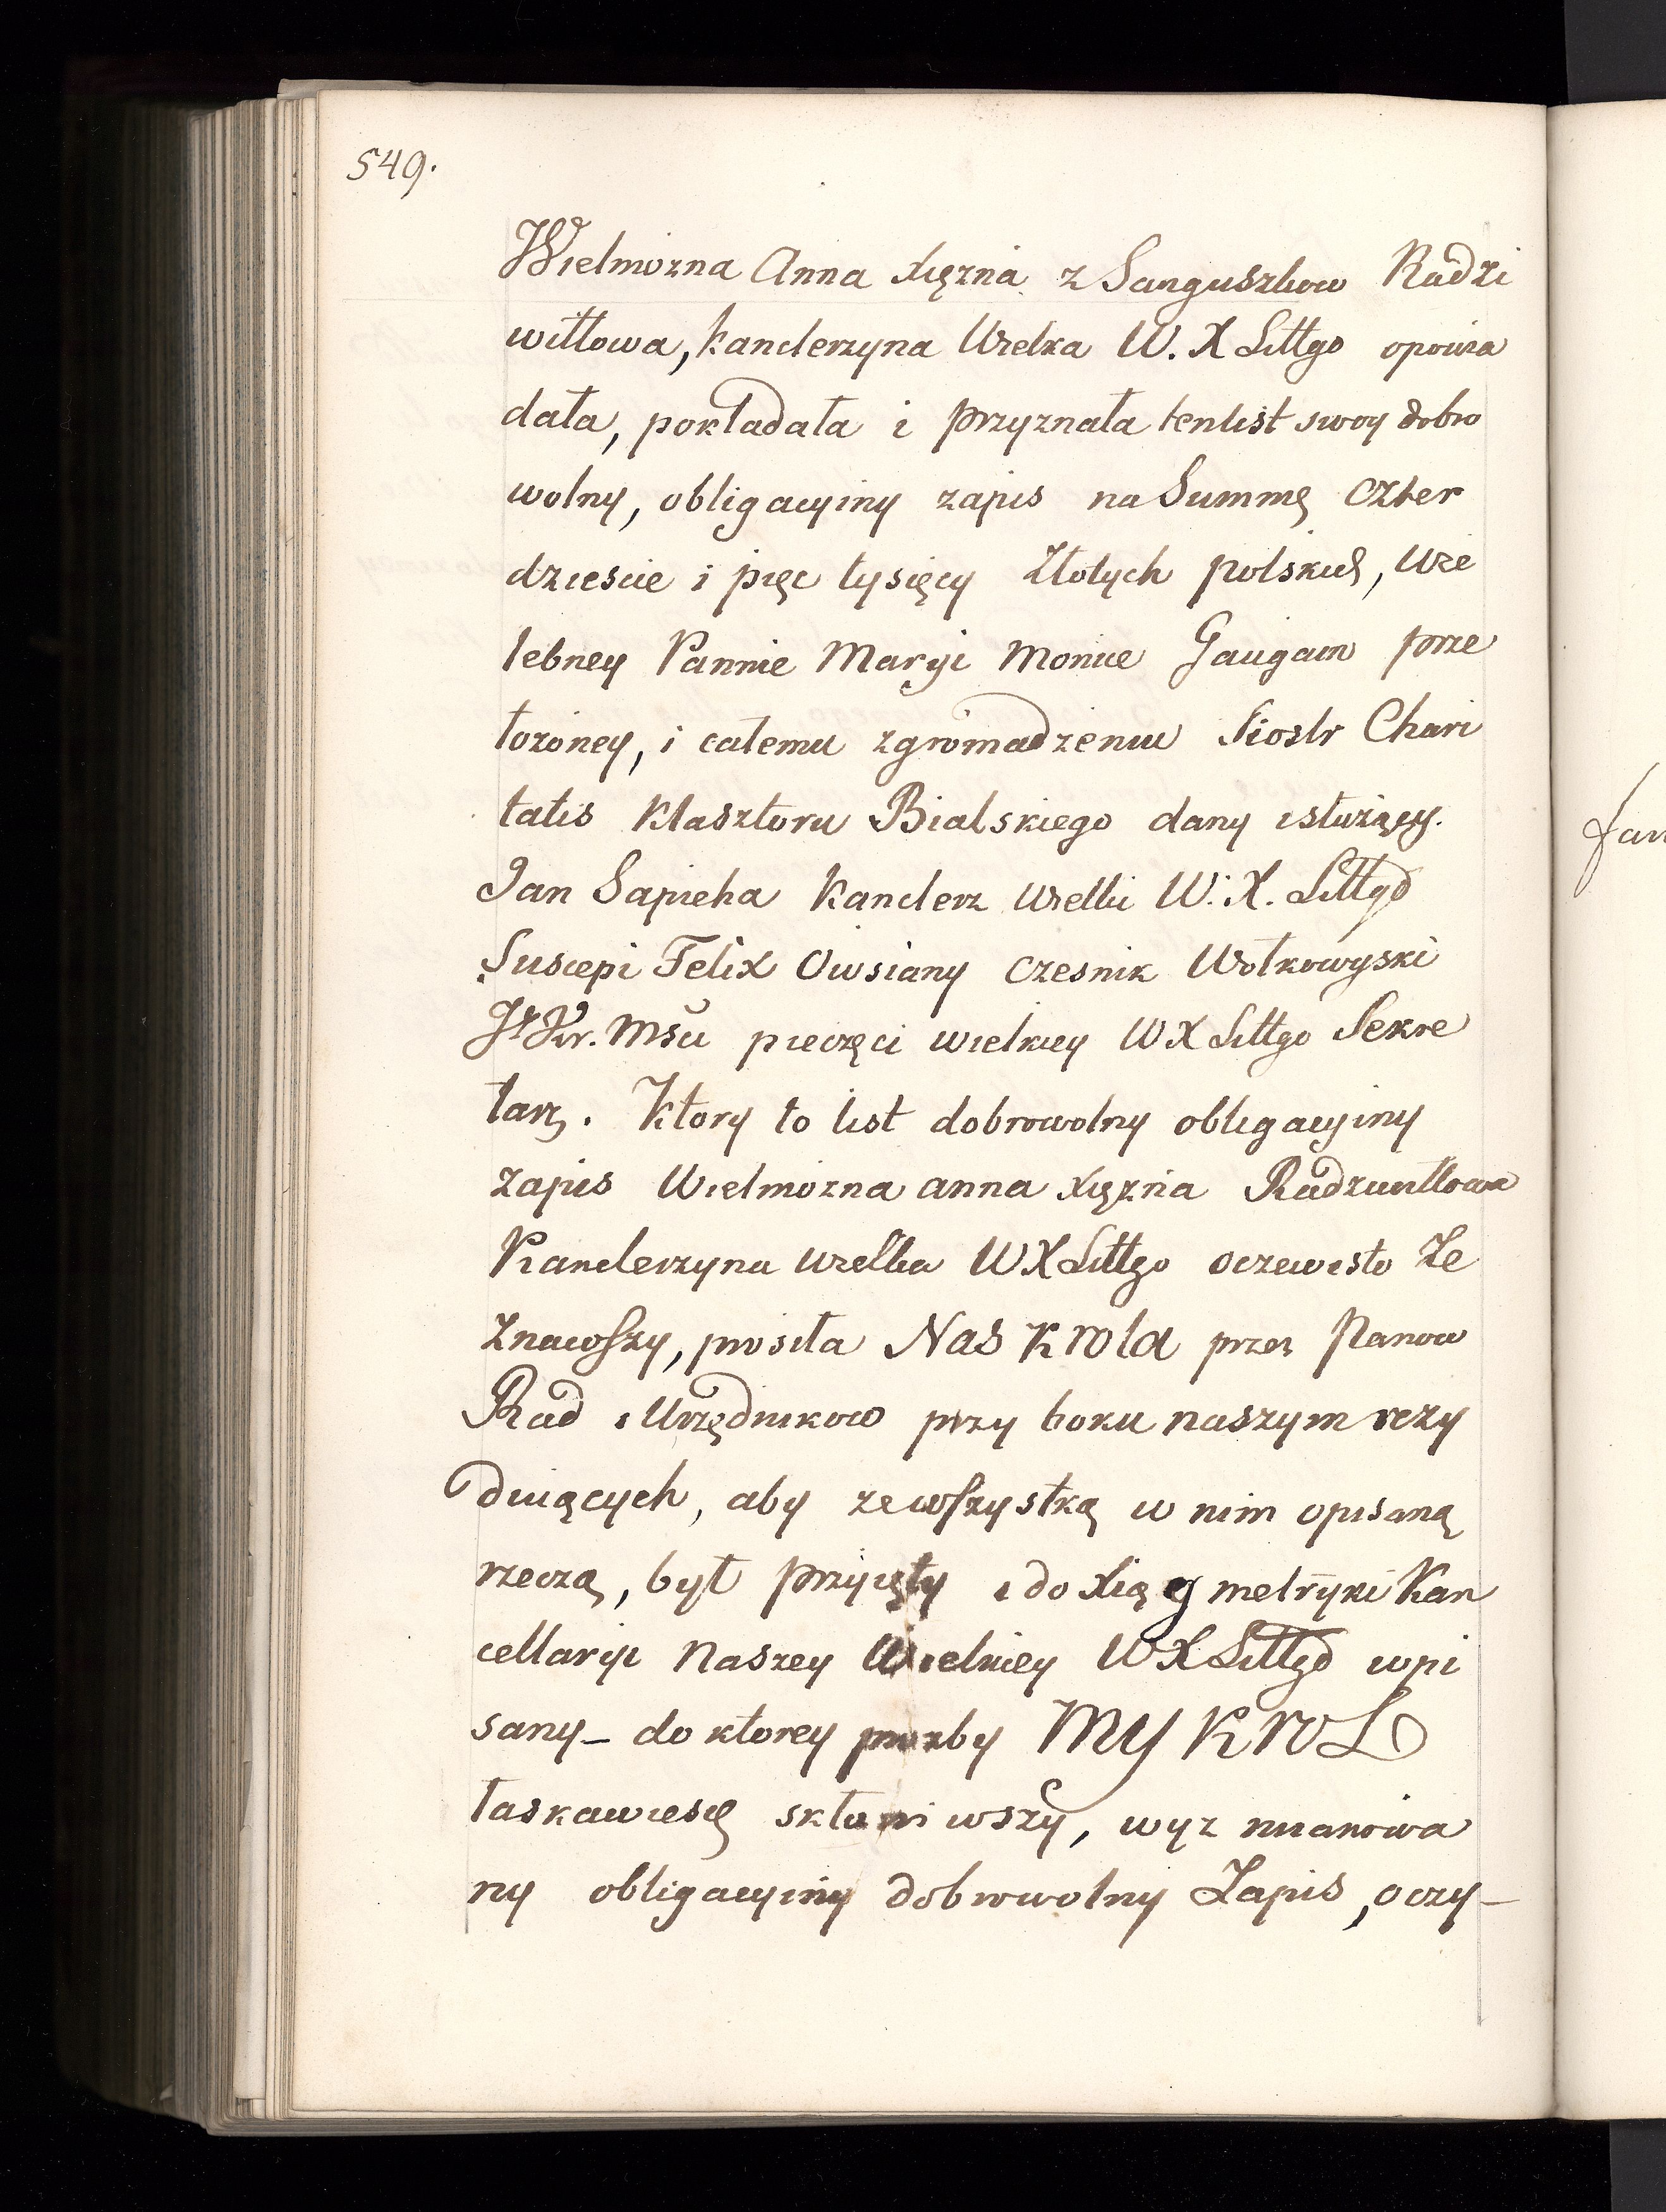 549.
Wielmozna Anna Xięzna z Sanguszkow Radzi
wiłłowa, kanclerzyna Wielka W. X Littgo opowia
dała, pokładała i przyznała ten list swoy dobro
wolny, obligacyiny zapis na Summę czter
dziescie i pięc tysięcy Złotych polskich, Wie
lebney Pannie Maryi Monice Gaugain prze
łożoney, i całemu zgromadzeniu Siostr Chari
tatis Klasztoru Bialskiego dany i służący.
Jan Sapieha Kanclerz Wielki W. X. Littgo
Suscepi Felix Owsiany Czesnik Wołkowyski
Je Kr. Mści pieczęci wielkiey W X Littgo Sekre
tarz. Ktory to list dobrowolny obligacyiny
zapis Wielmozna anna Xięzna Radziwiłłowa
Kanclerzyna Wielka W X Littgo oczewisto Ze
Znawszy, prosiła Nas Krola przez Panow
Rad i Urzędnikow przy boku naszym rezy
duiących, aby ze wszystką w nim opisaną
rzeczą, był przyięty i do Xiąg metryki Kan
cellaryi Naszey Wielkiey W X Littgo wpi
sany – do ktorey prozby My Krol
łaskawie się skłoniwszy, wyz mianowa
ny obligacyiny dobrowolny Zapis, oczy–
fan